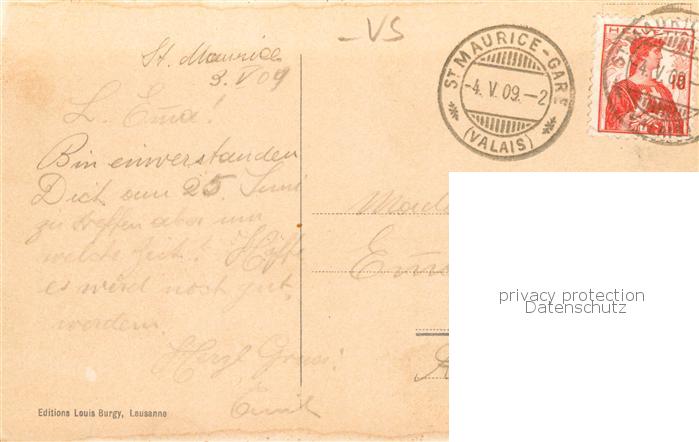 -VS
St. Maurice
3. V 09
L. Ema!
Bin einverstanden
Dich am 25. Juni
zu treffen aber um
welche Zeit? Hoffe
es wird noch gut
werden.
Herzl Gruss!
Emil
Editions Louis Burgy, Lausanne
ST MAURICE-GARE
-4. V. 09.-2
(VALAIS)
H
10
-4. V. 09
Ema
privacy protection
Datenschutz